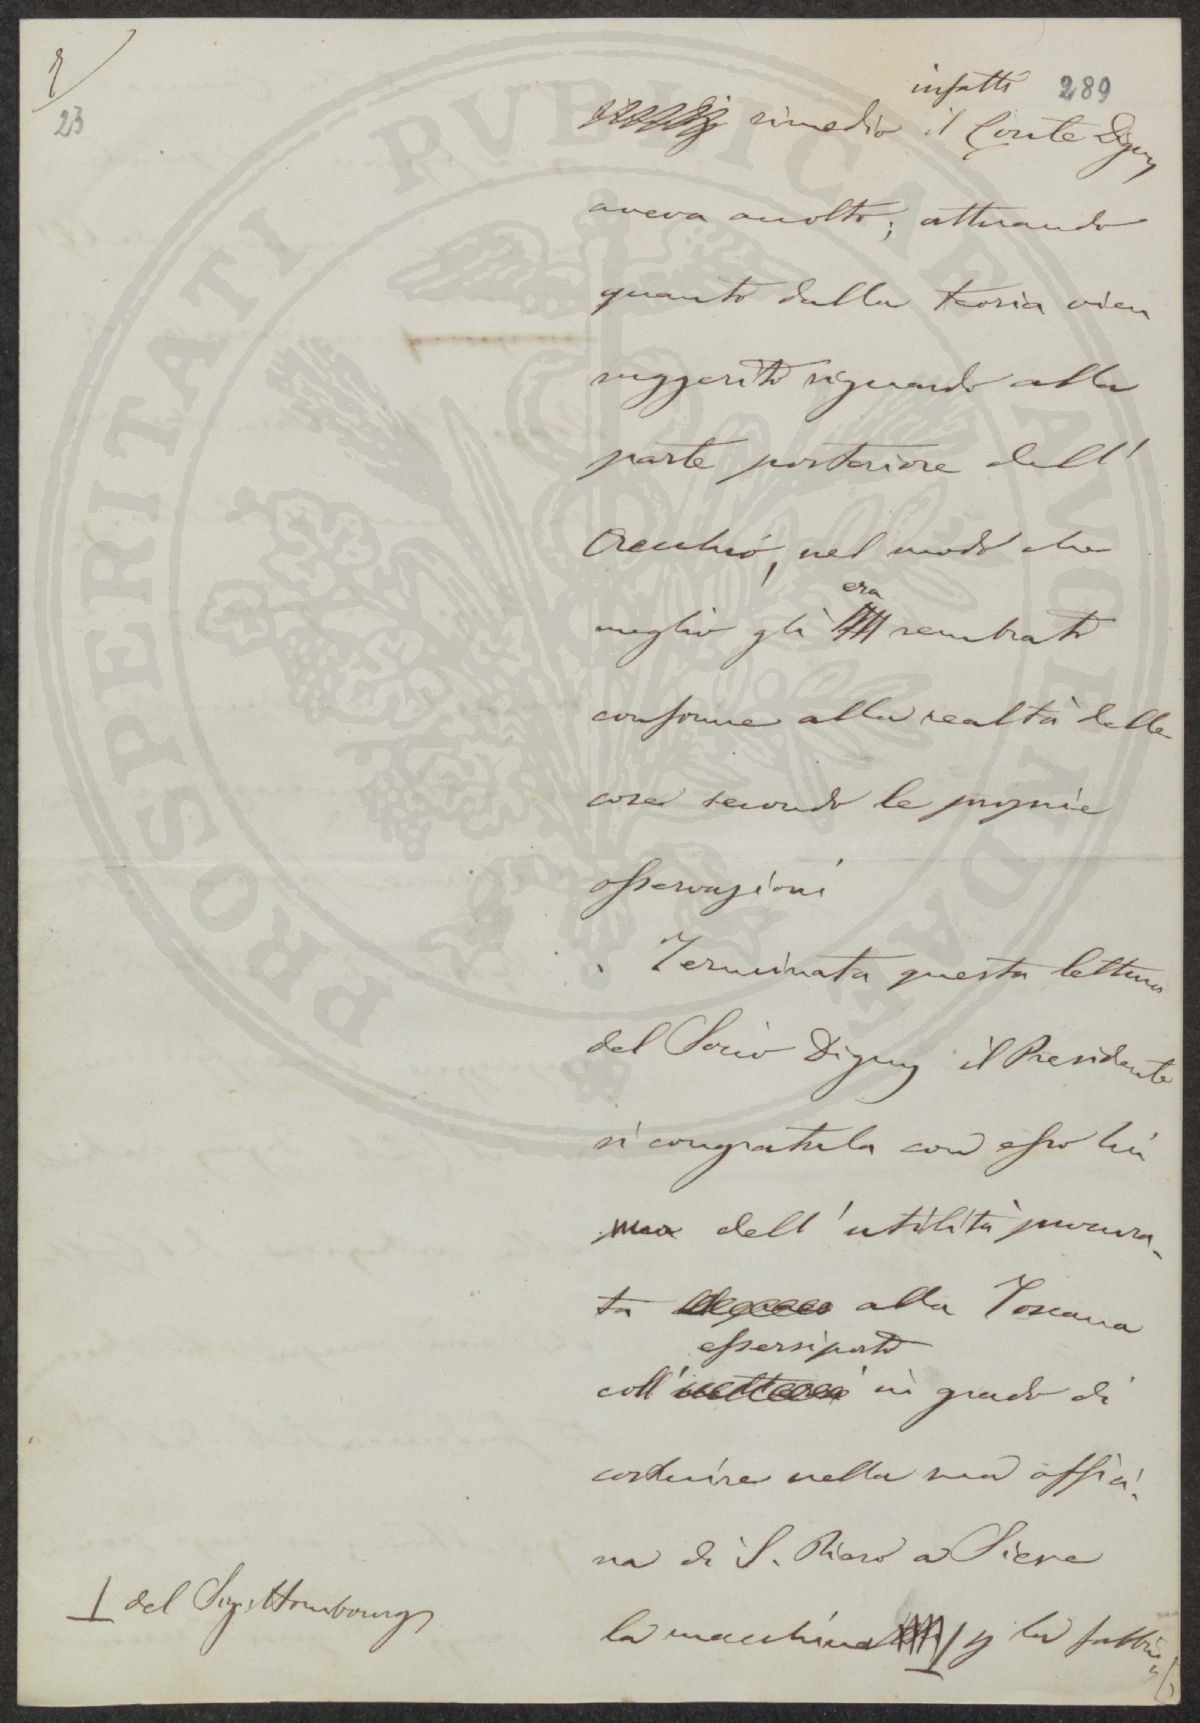 2/
23
289
infatti
rimedio il Conte Digny
aveva accolto; attuando
quanto dalla teoria vien
suggerito riguardo alla
parte posteriore dell'
Orecchio, nel modo che
era
meglio gli sembrato
conforme alla realtà delle
cose secondo le proprie
osservazioni
Terminata questa lettura
del Socio Digny il Presidente
si congratula con esso lui
dell'utilità procura-
ta alla Toscana
essersi posto
coll' in grado di
costruire nella sua offici-
na di S. Piero a Sieve
la macchina
del Sig. Hombourg
PROSPERITATI PVBLICAE AVGENDAE